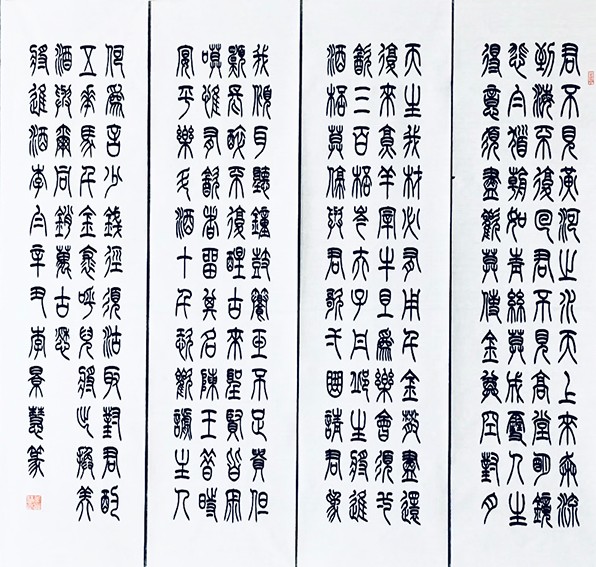 君不見黃河之水天上來奔流
到海不復回君不見高堂明鏡
悲白髮朝如青絲暮成雪人生
得意須盡歡莫使金樽空對月
天生我材必有用千金散盡還
復來烹羊宰牛且為樂會須一
飲三百杯岑夫子丹邱生將進
酒杯莫停與君歌一曲請君為
我傾耳聽鐘鼓饌玉不足貴但
願長醉不復醒古來聖賢皆寂
寞惟有飲者留其名陳王昔時
宴平樂斗酒十千恣歡謔主人
何為言少錢徑須沽取對君酌
五花馬千金裘呼兒將出換美
酒與爾同銷萬古愁
將進酒李白辛丑李景慧篆